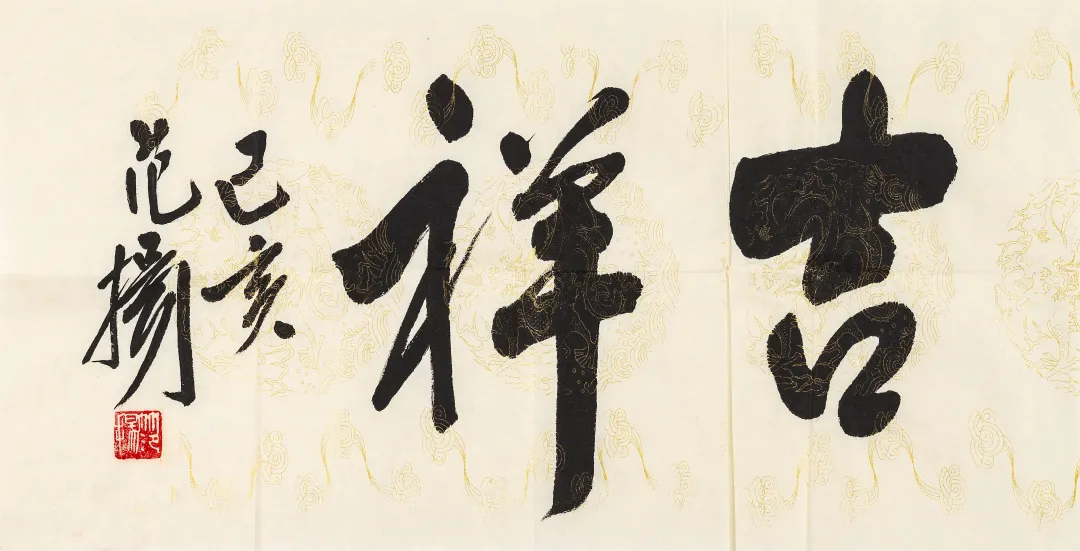 吉祥
己亥
范揚